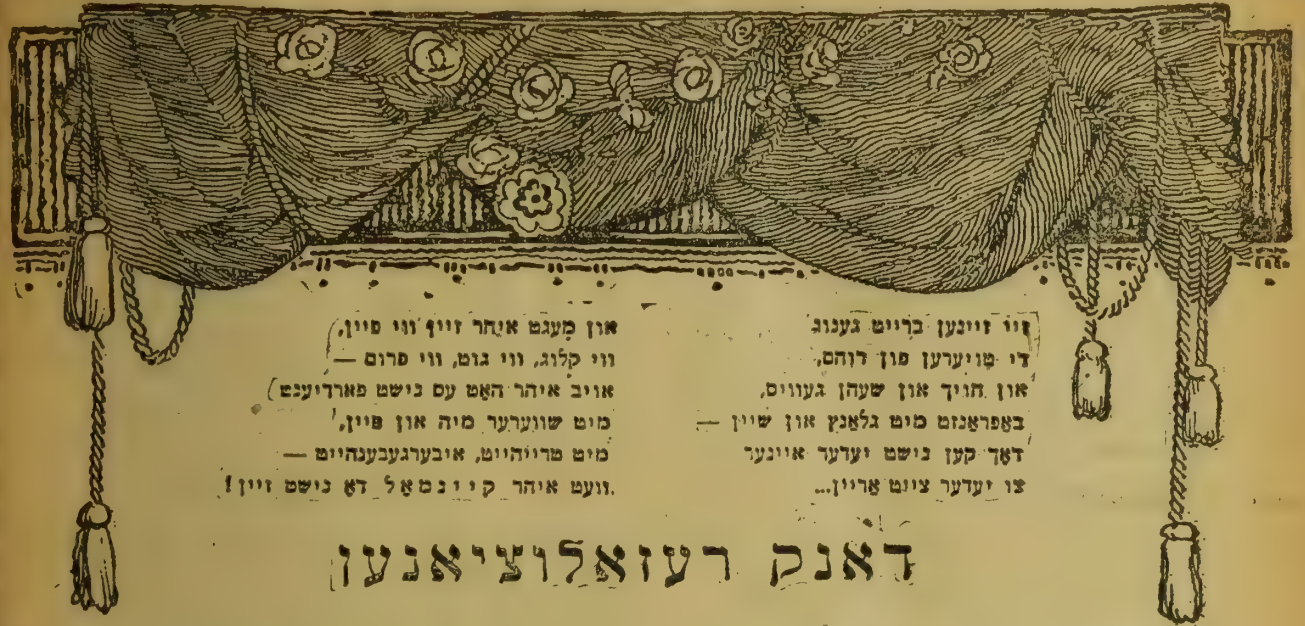 זיי זיינען ברייט גענוג
די טויערען פון רוהם,
און הויך און שעהן געוויס,
באַפראַנזט מיט גלאַנץ און שיין —
דאָך קען נישט יעדער איינער
צו יעדער צייט אַריין...
און מעגט איהר זיין ווי פיין,
ווי קלוג, ווי גוט, ווי פרום —
אויב איהר האָט עס נישט פאַרדיענט
מיט שווערער מיה און פיין,
מיט טרייהייט, איבערגעבענהייט —
וועט איהר קיינמאָל דאָ נישט זיין!
דאנק רעזאלוציאנען